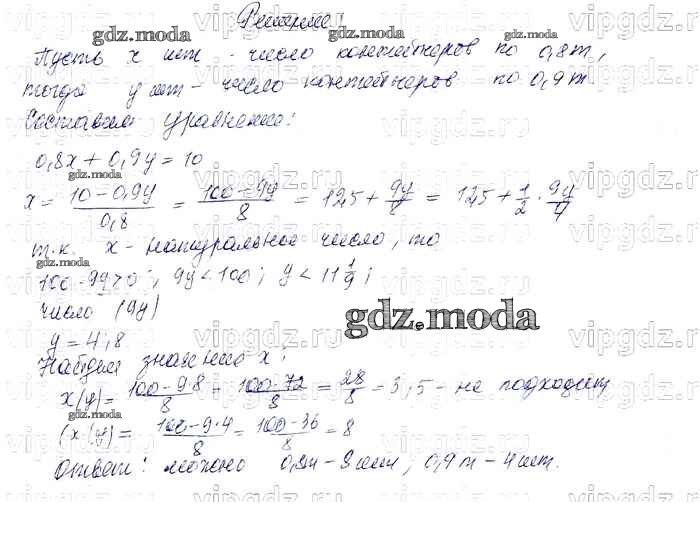 Решение:
Пусть x шт - число контейнеров по 0,8т,
тогда y шт - число контейнеров по 0,9т.
Составим уравнение:
0,8x + 0,9y = 10
x = \frac{10-0,9y}{0,8} = \frac{100-9y}{8} = 12,5 + \frac{9y}{8} = 12,5 + \frac{1}{2} \cdot \frac{9y}{4}
т.к. x - натуральное число, то
100-9y>0; 9y<100; y<11\frac{1}{9};
число (9y)
y = 4,8
Найдем значение x:
x(y) = \frac{100-9·8}{8} = \frac{100-72}{8} = \frac{28}{8} = 3,5 - не подходит
(x(y) = \frac{100-9·4}{8} = \frac{100-36}{8} = 8
Ответ: можно 0,8т - 8 шт, 0,9т - 4шт.
gdz.moda
vipgdz.ru